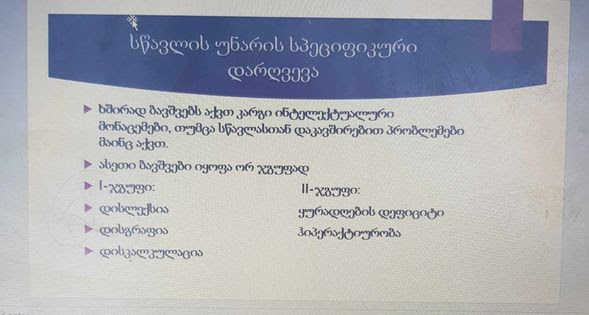 სწავლის უნარის სპეციფიკური
დარღვევა
ხშირად ბავშვებს აქვთ კარგი ინტელექტუალური
მონაცემები, თუმცა სწავლასთან დაკავშირებით პრობლემები
მაინც აქვთ.
ასეთი ბავშვები იყოფა ორ ჯგუფად
I-ჯგუფი: II-ჯგუფი:
დისლექსია ყურადღების დეფიციტი
დისგრაფია ჰიპერაქტიურობა
დისკალკულაცია